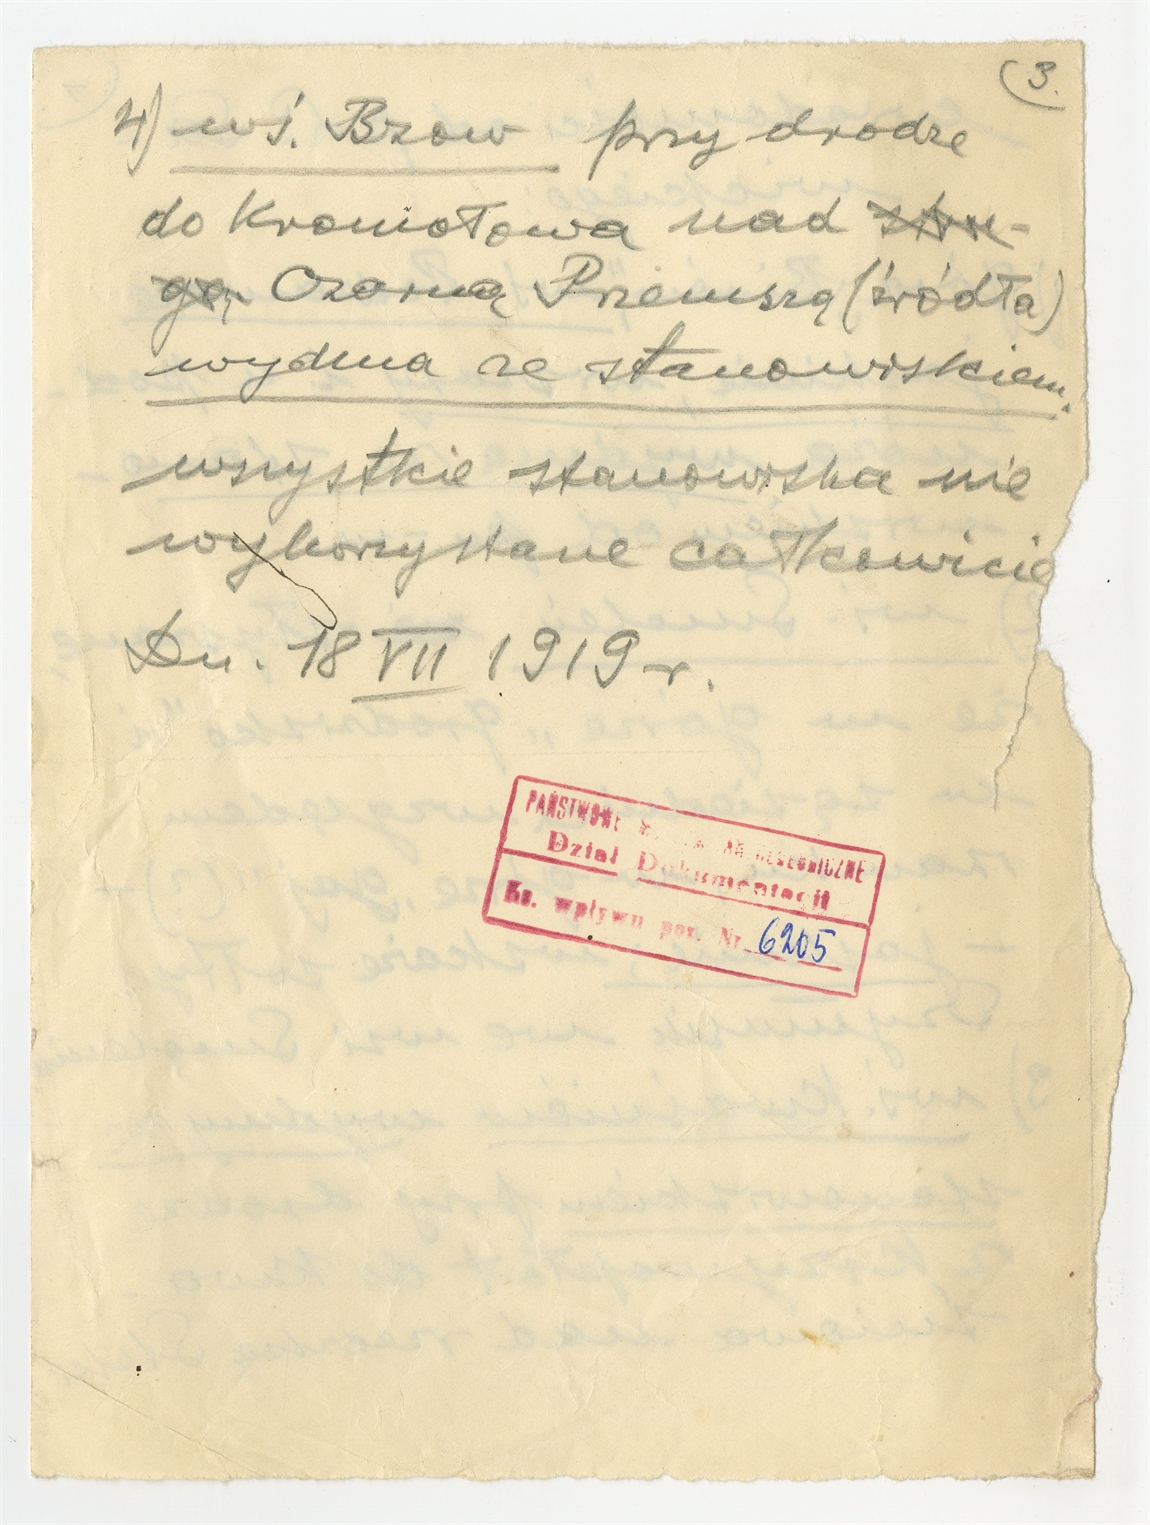 3.
4) wś. Bzow przy drodze
do Kromołowa nad stru-
gą, Czarną Przemszą (źródła)
wydma ze stanowiskiem.
wszystkie stanowiska nie
wykorzystane całkowicie
Dn. 18 VII 1919 r.
PAŃSTWOWE
Dział Dokumentacji
Ks. wpływu poz. Nr. 6205